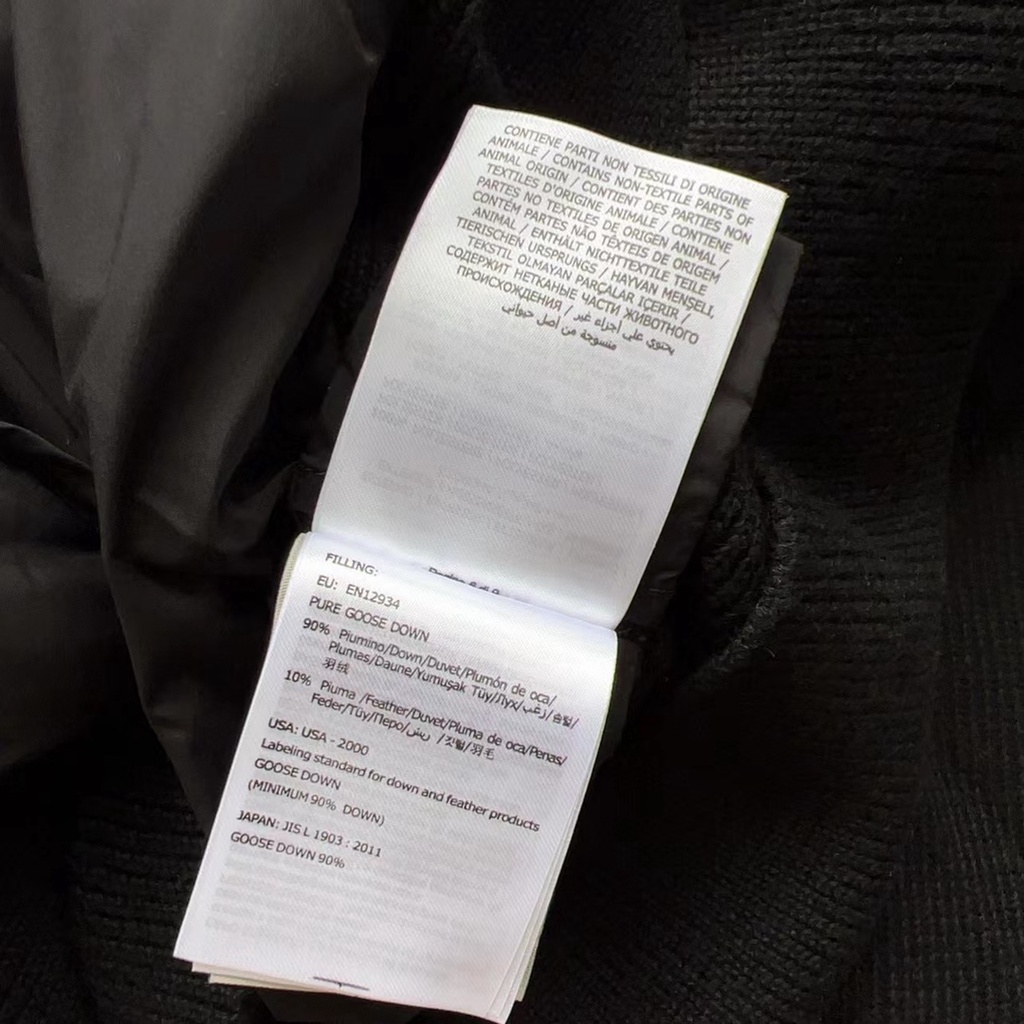 CONTIENE PARTI NON TESSILI DI ORIGINE
ANIMALE / CONTAINS NON-TEXTILE PARTS OF
ANIMAL ORIGIN / CONTIENT DES PARTIES NON
TEXTILES D'ORIGINE ANIMALE / CONTIENE
PARTES NO TEXTILES DE ORIGEN ANIMAL /
CONTÉM PARTES NÃO TÊXTEIS DE ORIGEM
ANIMAL / ENTHÄLT NICHTTEXTILE TEILE
TIERISCHEN URSPRUNGS / HAYVAN MENŞELİ,
TEKSTİL OLMAYAN PARÇALAR İÇERİR /
СОДЕРЖИТ НЕТКАНЫЕ ЧАСТИ ЖИВОТНОГО
ПРОИСХОЖДЕНИЯ / يحتوي على أجزاء غير
منسوجة من أصل حيواني
FILLING:
EU: EN12934
PURE GOOSE DOWN
90% Piumino/Down/Duvet/Plumón de oca/
Plumas/Daune/Yumuşak Tüy/Пух/زغب/솜털/
羽绒
10% Piuma /Feather/Duvet/Pluma de oca/Penas/
Feder/Tüy/Перо/ريش /깃털/羽毛
USA: USA - 2000
Labeling standard for down and feather products
GOOSE DOWN
(MINIMUM 90% DOWN)
JAPAN: JIS L 1903 : 2011
GOOSE DOWN 90%